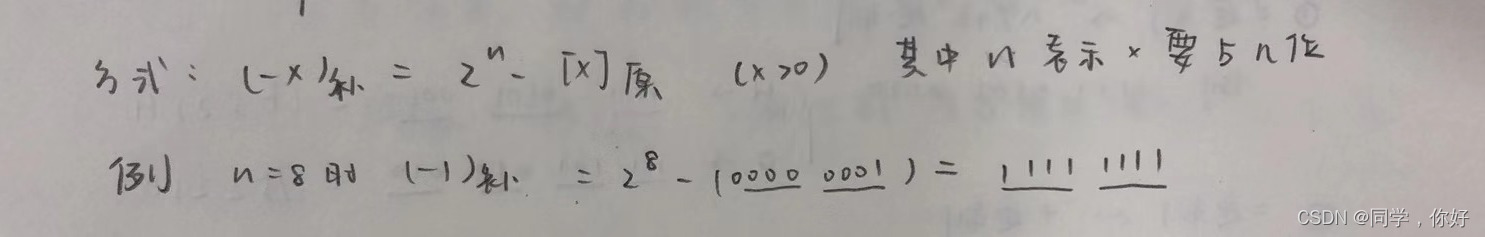 方式：(-x)补 = 2ⁿ - [x]原 (x>0) 其中 n 表示 x 要占 n 位
例 n=8时 (-1)补 = 2⁸ - (0000 0001) = 1111 1111
CSDN @同学，你好